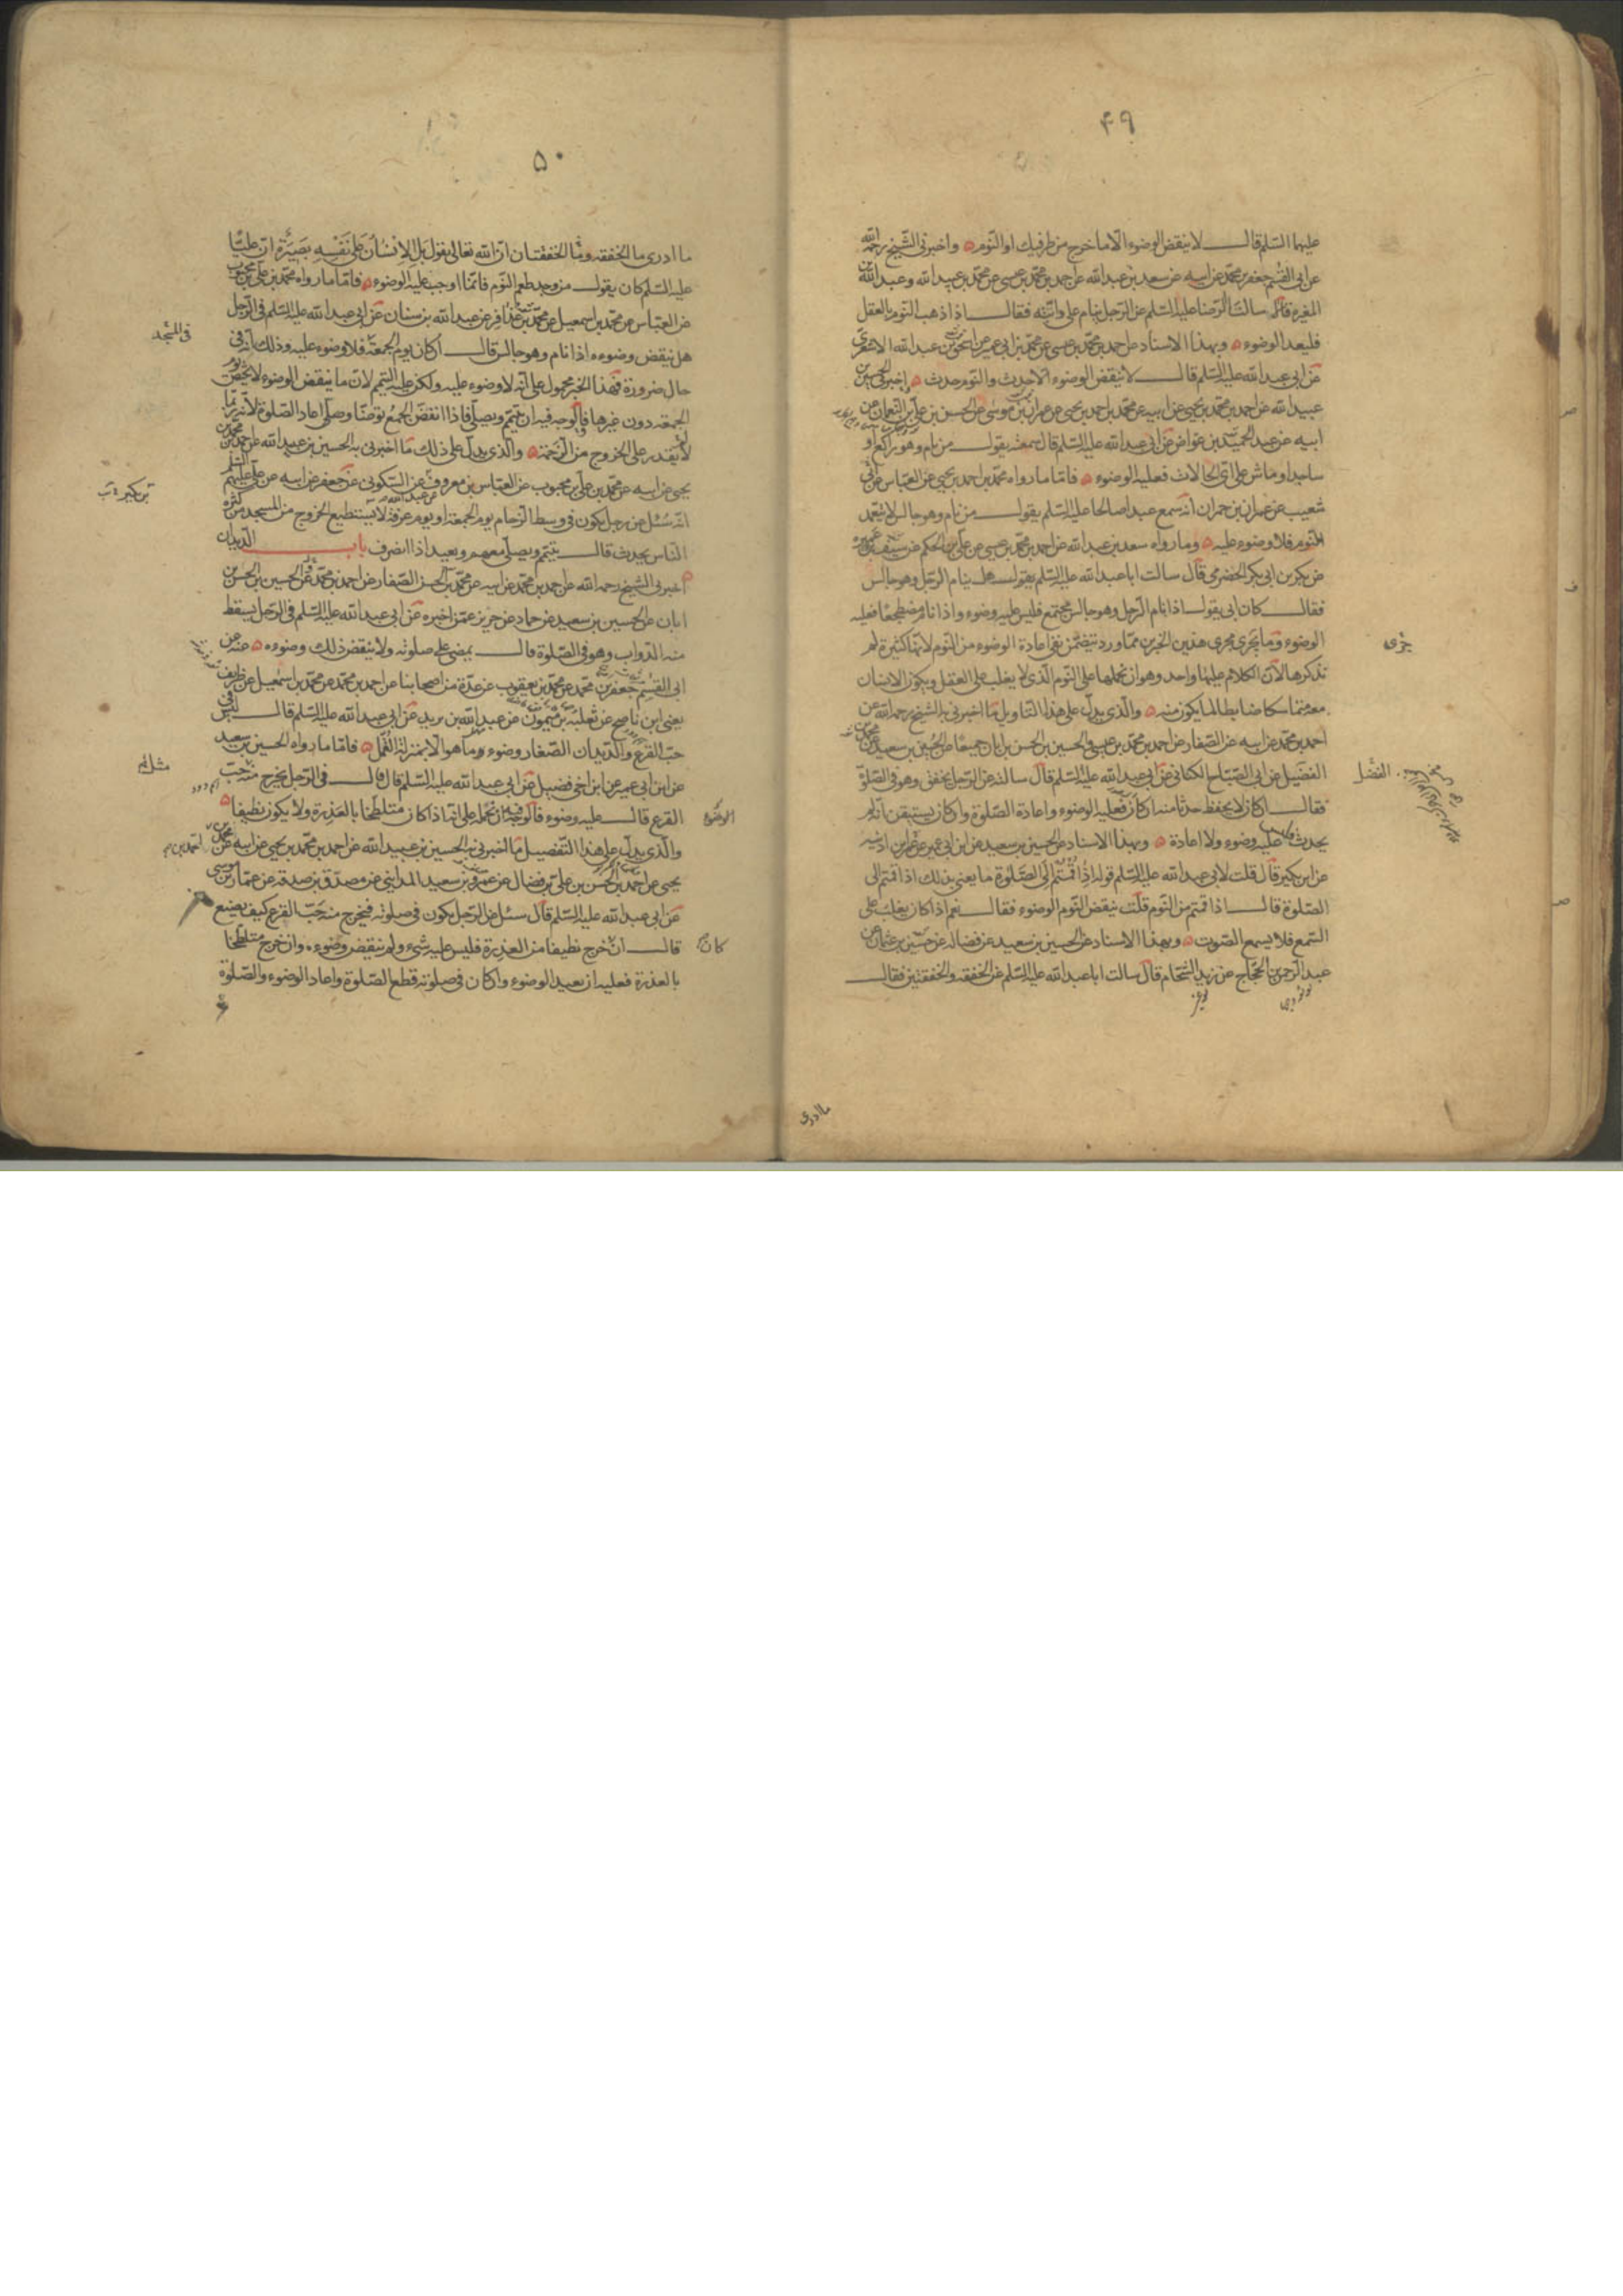 ۴۹
عليهما السّلم قال لا ينقض الوضوء الّا ما خرج من طرفيك او النّوم واخبرنى الشّيخ رحمه اللّه
عن ابى القسم جعفر بن محمّد عن ابيه عن سعد بن عبد اللّه عن احمد بن محمّد بن عيسى عن محمّد بن عبيد اللّه وعبد اللّه بن
المغيرة قالا سالنا الرّضا عليه السّلم عن الرّجل ينام على دابّته فقال اذا ذهب النّوم بالعقل
فليعد الوضوء وبهذا الاسناد عن احمد بن محمّد بن عيسى عن محمّد بن ابى عمير عن اسحق بن عبد اللّه الاشعرى
عن ابى عبد اللّه عليه السّلم قال لا ينقض الوضوء الّا حدث والنّوم حدث اخبرنى الحسين بن
عبيد اللّه عن احمد بن محمّد بن يحيى عن ابيه عن محمّد بن احمد بن يحيى عن عمران بن موسى عن الحسن بن على بن النعمان عن
ابيه عن عبد الحميد بن عواض عن ابى عبد اللّه عليه السّلم قال سمعته يقول من نام وهو راكع او
ساجد او ماش على اىّ الحالات فعليه الوضوء فامّا ما رواه محمّد بن احمد بن يحيى عن العبّاس عن ابى
شعيب عن عمران بن حمران انّه سمع عبدا صالحا عليه السّلم يقول من نام وهو جالس لا يتعمّد
النّوم فلا وضوء عليه وما رواه سعد بن عبد اللّه عن احمد بن محمّد بن عيسى عن علىّ بن الحكم عن سيف بن عميرة
عن بكر بن ابى بكر الحضرمى قال سالت ابا عبد اللّه عليه السّلم يقول هل ينام الرّجل وهو جالس
فقال كان ابى يقول اذا نام الرّجل وهو جالس مجتمع فليس عليه وضوء واذا نام مضطجعا فعليه
الوضوء وما يجرى مجرى هذين الخبرين ممّا ورد يتضمّن نفى اعادة الوضوء من النّوم لانّها كثيرة لم
نذكرها لانّ الكلام عليها واحد وهو ان نحملها على النّوم الّذى لا يغلب على العقل ويكون الانسان
معه متماسكا ضابطا لما يكون منه والّذى يدلّ على هذا التّاويل ما اخبرنى به الشّيخ رحمه اللّه عن
احمد بن محمّد عن ابيه عن الصّفار عن احمد بن محمّد بن عيسى والحسين بن الحسن بن ابان جميعا عن الحسين بن سعيد عن محمّد بن
الفضيل عن ابى الصّباح الكنانى عن ابى عبد اللّه عليه السّلم قال سالته عن الرّجل يخفق وهو فى الصّلوة
فقال ان كان لا يحفظ حدثا منه ان كان فعليه الوضوء واعادة الصّلوة وان كان يستيقن انّه لم
يحدث فليس عليه وضوء ولا اعادة وبهذا الاسناد عن الحسين بن سعيد عن ابن ابى عمير عن عمر بن اذينه
عن ابن بكير قال قلت لابى عبد اللّه عليه السّلم قوله اذا قُمتُم الى الصّلوة ما يعنى بذلك اذا قمتم الى
الصّلوة قال اذا قمتم من النّوم قلت ينقض النّوم الوضوء فقال نعم اذا كان يغلب على
السّمع فلا يسمع الصّوت وبهذا الاسناد عن الحسين بن سعيد عن فضاله عن حسين بن عثمان عن
عبد الرّحمن بن الحجّاج عن زيد الشّحام قال سالت ابا عبد اللّه عليه السّلم عن الخفقه والخفقتين فقال
جرى
الفضل
ما ادرى
۵۰
ما ادرى ما الخفقه وما الخفقتان انّ اللّه تعالى يقول بل الانسان على نفسه بصيرة انّ عليّا
عليه السّلم كان يقول من وجد طعم النّوم فانّما اوجب عليه الوضوء فامّا ما رواه محمّد بن على بن محبوب
عن العبّاس عن محمّد بن اسمعيل عن محمّد بن عذافر عن عبد اللّه بن سنان عن ابى عبد اللّه عليه السّلم فى الرّجل
هل ينقض وضوءه اذا نام وهو جالس قال ان كان يوم الجمعة فلا وضوء عليه وذلك انّه فى
حال ضرورة فهذا الخبر محمول على انّه لا وضوء عليه ولكن عليه التيمّم لانّ ما ينقض الوضوء لا يختصّ يوم
الجمعة دون غيرها فالوجه فيه ان يتيمّم ويصلّى فاذا انفضّ الجمع توضّا وصلّى اعاد الصّلوة لانّه ربّما
لا يقدر على الخروج من الزّحمة والّذى يدلّ على ذلك ما اخبرنى به الحسين بن عبيد اللّه عن احمد بن محمّد بن
يحيى عن ابيه عن محمّد بن علىّ بن محبوب عن العبّاس بن معروف عن السّكونى عن جعفر عن ابيه عن علىّ عليهم السّلم
انّه سُئل عن رجل يكون فى وسط الزّحام يوم الجمعة او يوم عرفة لا يستطيع الخروج من المسجد من كثرة
النّاس يحدث قال يتيمّم ويصلّى معهم ويعيد اذا انصرف باب الدّيدان
اخبرنى الشيخ رحمه اللّه عن احمد بن محمّد عن ابيه عن محمّد بن الحسن الصّفار عن احمد بن محمّد عن الحسين بن الحسن بن
ابان عن الحسين بن سعيد عن حماد عن حريز عمّن اخبره عن ابى عبد اللّه عليه السّلم فى الرّجل يسقط
منه الدّواب وهو فى الصّلوة قال يمضى على صلوته ولا ينقض ذلك وضوءه عنه عن
ابى القسم جعفر بن محمّد عن محمّد بن يعقوب عن عدّة من اصحابنا عن احمد بن محمّد عن محمّد بن اسمعيل عن ظريف
يعنى ابن ناصح عن ثعلبة بن ميمون عن عبد اللّه بن يزيد عن ابى عبد اللّه عليه السّلم قال ليس فى
حبّ القرع والدّيدان الصّغار وضوء وما هو الّا بمنزلة القُمّل فامّا ما رواه الحسين بن سعيد
عن ابن ابى عمير عن ابن اخى فضيل عن ابى عبد اللّه عليه السّلم قال قال فى الرّجل يخرج منه حبّ
القرع قال عليه وضوء فالوجه فيه ان نحمله على انّه اذا كان متلطّخا بالعذرة ولا يكون نظيفا
والّذى يدلّ على هذا التّفصيل ما اخبرنى به الحسين بن عبيد اللّه عن احمد بن محمّد بن يحيى عن ابيه عن محمّد بن
يحيى عن احمد بن الحسن بن على بن فضال عن عمرو بن سعيد المداينى عن مصدّق بن صدقه عن عمّار بن موسى
عن ابى عبد اللّه عليه السّلم قال سئل عن الرّجل يكون فى صلوته فيخرج منه حبّ القرع كيف يصنع
قال ان خرج نظيفا من العذرة فليس عليه شىء ولم ينقض وضوءه وان خرج متلطّخا
بالعذرة فعليه ان يعيد الوضوء وان كان فى صلوته قطع الصّلوة واعاد الوضوء والصّلوة
فى المسجد
بن بكير
مثله
الوضوء
كان
احمد بن